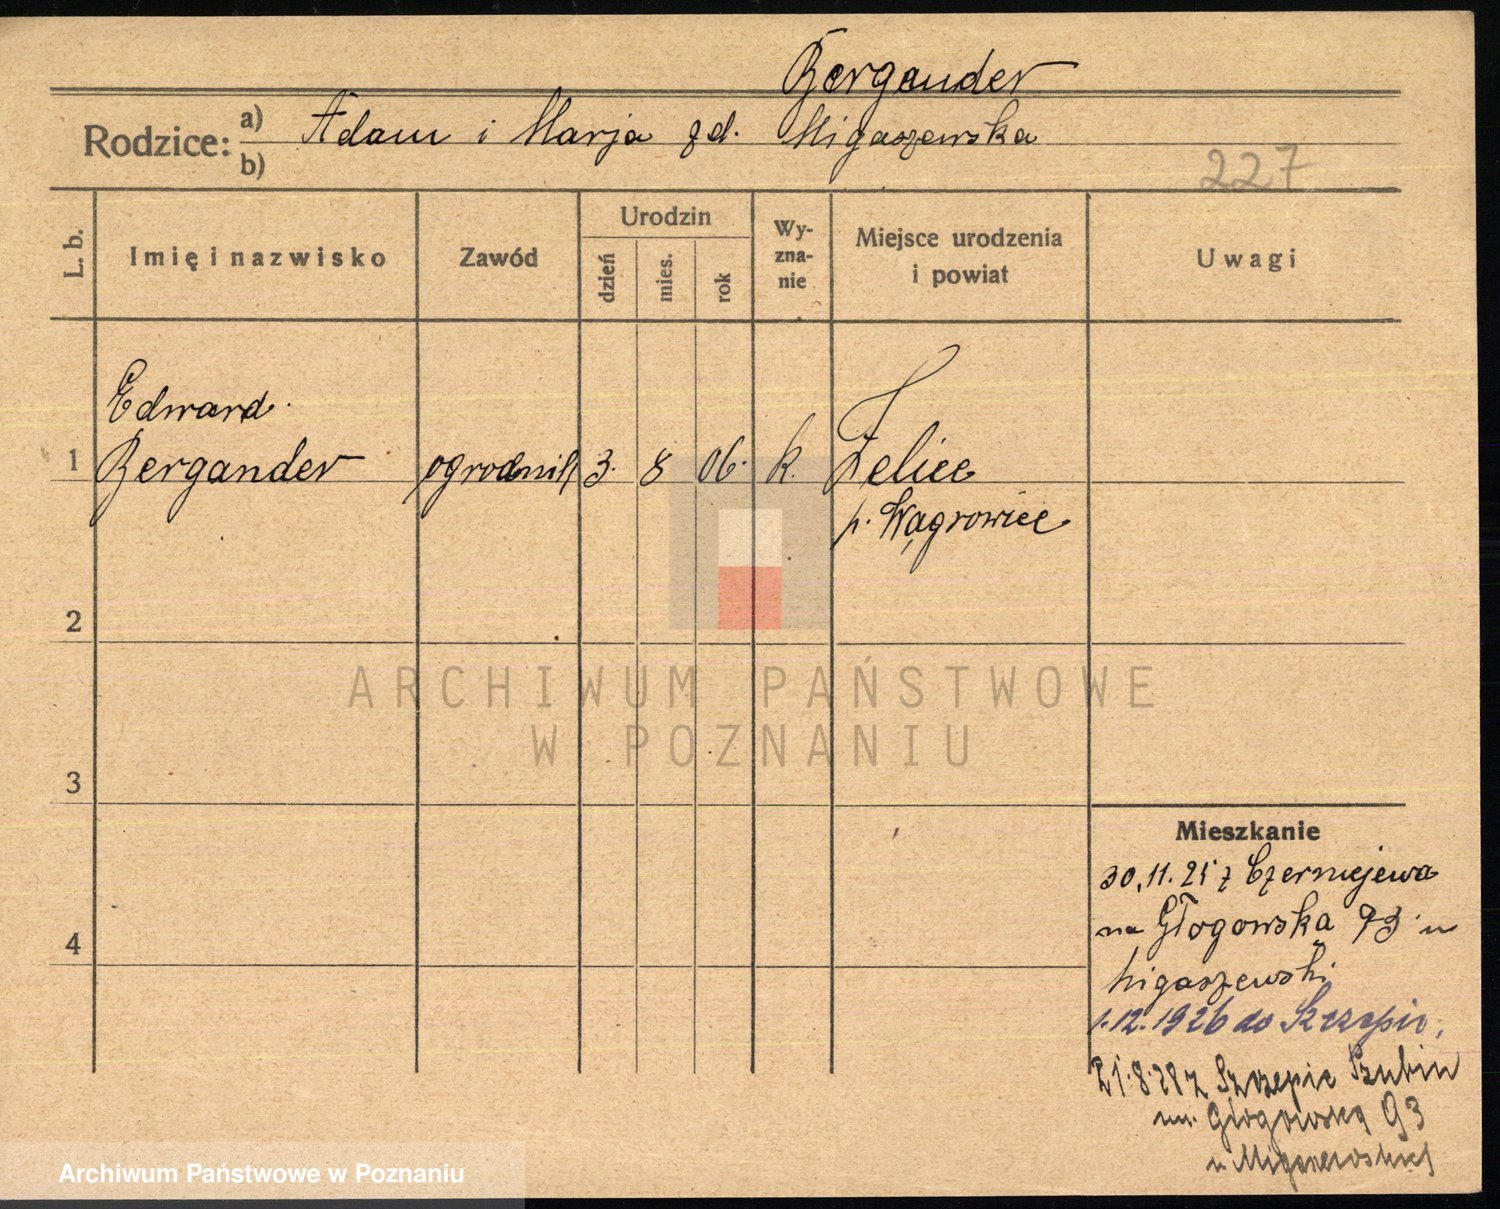 Bergander
Rodzice: a) Adam i Marja zd. Migaszewska
b)
227
L. b. Imię i nazwisko Zawód Urodzin dzień mies. rok Wyzna-nie Miejsce urodzenia i powiat Uwagi
Edward
1 Bergander ogrodnik 3. 8 06. k. Zelice
p. Wągrowiec
2
ARCHIWUM PAŃSTWOWE
W POZNANIU
3
Mieszkanie
30.11.25 z Czerniejewa
na Głogowska 93 u
Migaszewski
4
1.12.1926 do Szczepic,
21.8.28 z Szczepic Szubin
Głogowska 93
u Migaszewskiej
Archiwum Państwowe w Poznaniu